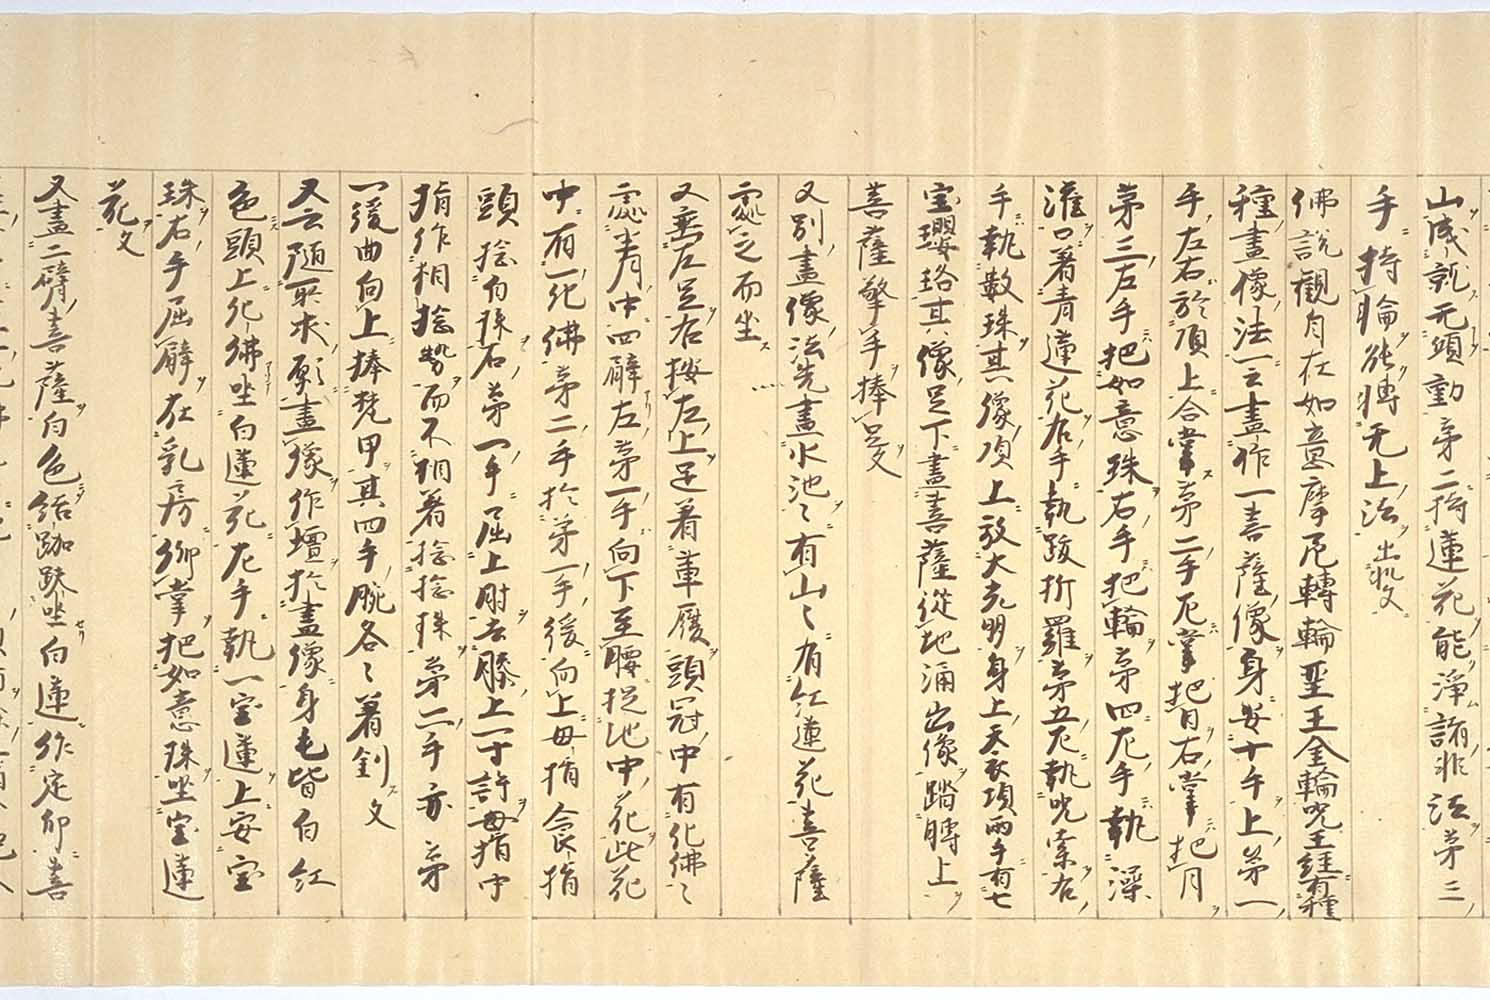 山成就无頃動苐二持蓮花能淨諸非法苐三
手持輪能轉无上法
佛說觀自在如意摩尼轉輪聖王金輪呪王経有種
種畫像法一云畫作一菩薩像身安十手上苐一
手左右於頂上合掌苐二手左掌把日右掌把月
苐三左手把如意珠右手把輪苐四左手執澡
灌口著青蓮花右手執跋折羅苐五左執呪索右
手執數珠其像頂上放大光明身上天衣項兩手有七
宝瓔珞其像足下畫菩薩從地涌出像踏膊上
菩薩擎手捧足文
又別畫像法先畫水池〻有山〻有紅蓮花菩薩
處之而坐
又垂左足右按左上足著革履頭冠中有化佛〻
處青中四臂左苐一手向下至腰捉池中花此花
中有一化佛苐二手於苐一手後向上母指食指
頭捻白珠右苐一手屈上肘去膝上一寸許母指中
指作相捻勢而不相著捻捻珠苐二手亦苐
一後曲向上捧梵甲其四手腕各〻著釧文
又云随所求願畫像作壇於畫像身毛皆白紅
色頭上化佛坐白蓮花左手執一宝蓮上安宝
珠右手屈臂在乳房仰掌把如意珠坐宝蓮
花文
又畫二臂菩薩白色結跏趺坐白蓮作定印菩